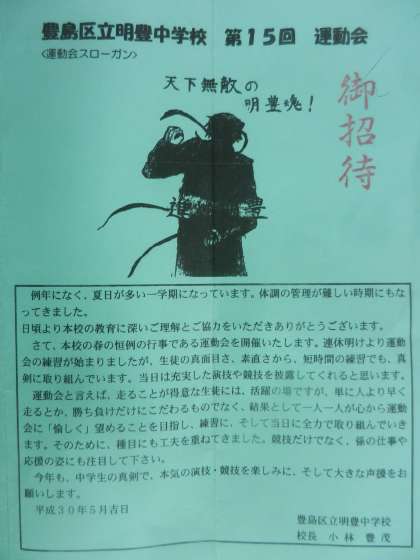 豊島区立明豊中学校　第１５回　運動会
<運動会スローガン>
天下無敵の
明豊魂！
御招待
例年になく、夏日が多い一学期になっています。体調の管理が難しい時期にもな
ってきました。
日頃より本校の教育に深いご理解とご協力をいただきありがとうございます。
さて、本校の春の恒例の行事である運動会を開催いたします。連休明けより運動
会の練習が始まりましたが、生徒の真面目さ、素直さから、短時間の練習でも、真
剣に取り組んでいます。当日は充実した演技や競技を披露してくれると思います。
運動会と言えば、走ることが得意な生徒には、活躍の場ですが、単に人より早く
走るとか、勝ち負けだけにこだわるものでなく、結果として一人一人が心から運動
会に「愉しく」望めることを目指し、練習に、そして当日に全力で取り組んでいき
ます。そのために、種目にも工夫を重ねてきました。競技だけでなく、係の仕事や
応援の姿にも注目して下さい。
今年も、中学生の真剣で、本気の演技・競技を楽しみに、そして大きな声援をお
願いします。
平成３０年５月吉日
豊島区立明豊中学校
校長　小林　豊茂